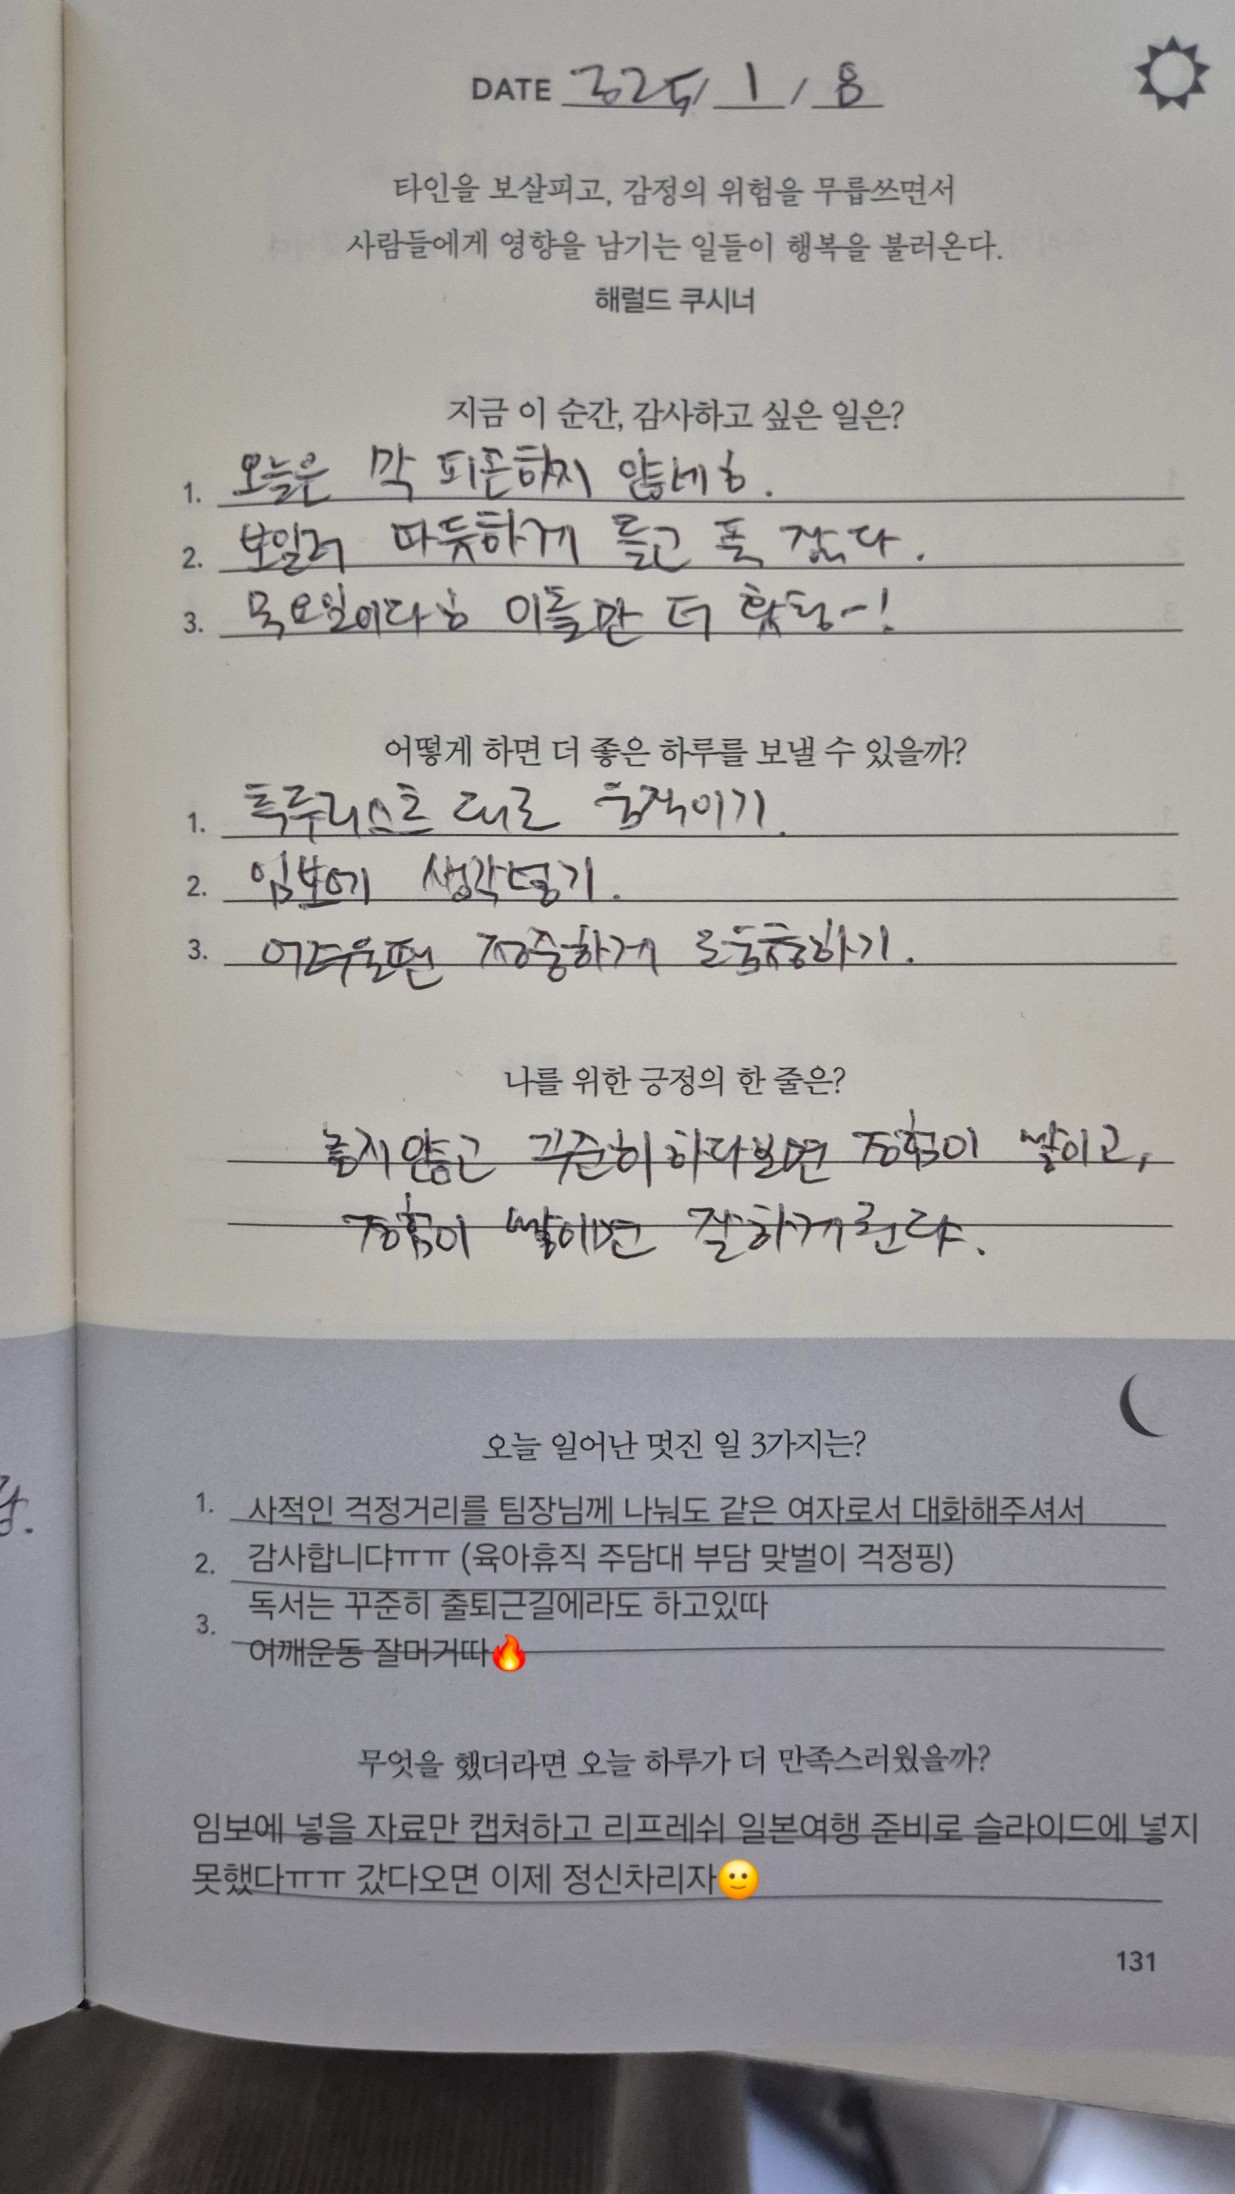 DATE 2025 / 1 / 8
타인을 보살피고, 감정의 위험을 무릅쓰면서
사람들에게 영향을 남기는 일들이 행복을 불러온다.
해럴드 쿠시너
지금 이 순간, 감사하고 싶은 일은?
1. 오늘은 막 피곤하지 않네ㅎ.
2. 보일러 따듯하게 틀고 푹 잤다.
3. 목요일이다ㅎ 이틀만 더 홧팅~!
어떻게 하면 더 좋은 하루를 보낼 수 있을까?
1. 톡투리스트 대로 움직이기.
2. 임보에 생각덜기.
3. 어려울땐 정중하게 요청하기.
나를 위한 긍정의 한 줄은?
놓지않고 꾸준히하다보면 경험이 쌓이고,
경험이 쌓이면 잘하게된다.
오늘 일어난 멋진 일 3가지는?
1. 사적인 걱정거리를 팀장님께 나눠도 같은 여자로서 대화해주셔서
2. 감사합니댜ㅠㅠ (육아휴직 주담대 부담 맞벌이 걱정핑)
독서는 꾸준히 출퇴근길에라도 하고있따
3. 어깨운동 잘머거따🔥
무엇을 했더라면 오늘 하루가 더 만족스러웠을까?
임보에 넣을 자료만 캡쳐하고 리프레쉬 일본여행 준비로 슬라이드에 넣지
못했다ㅠㅠ 갔다오면 이제 정신차리자🙂
131